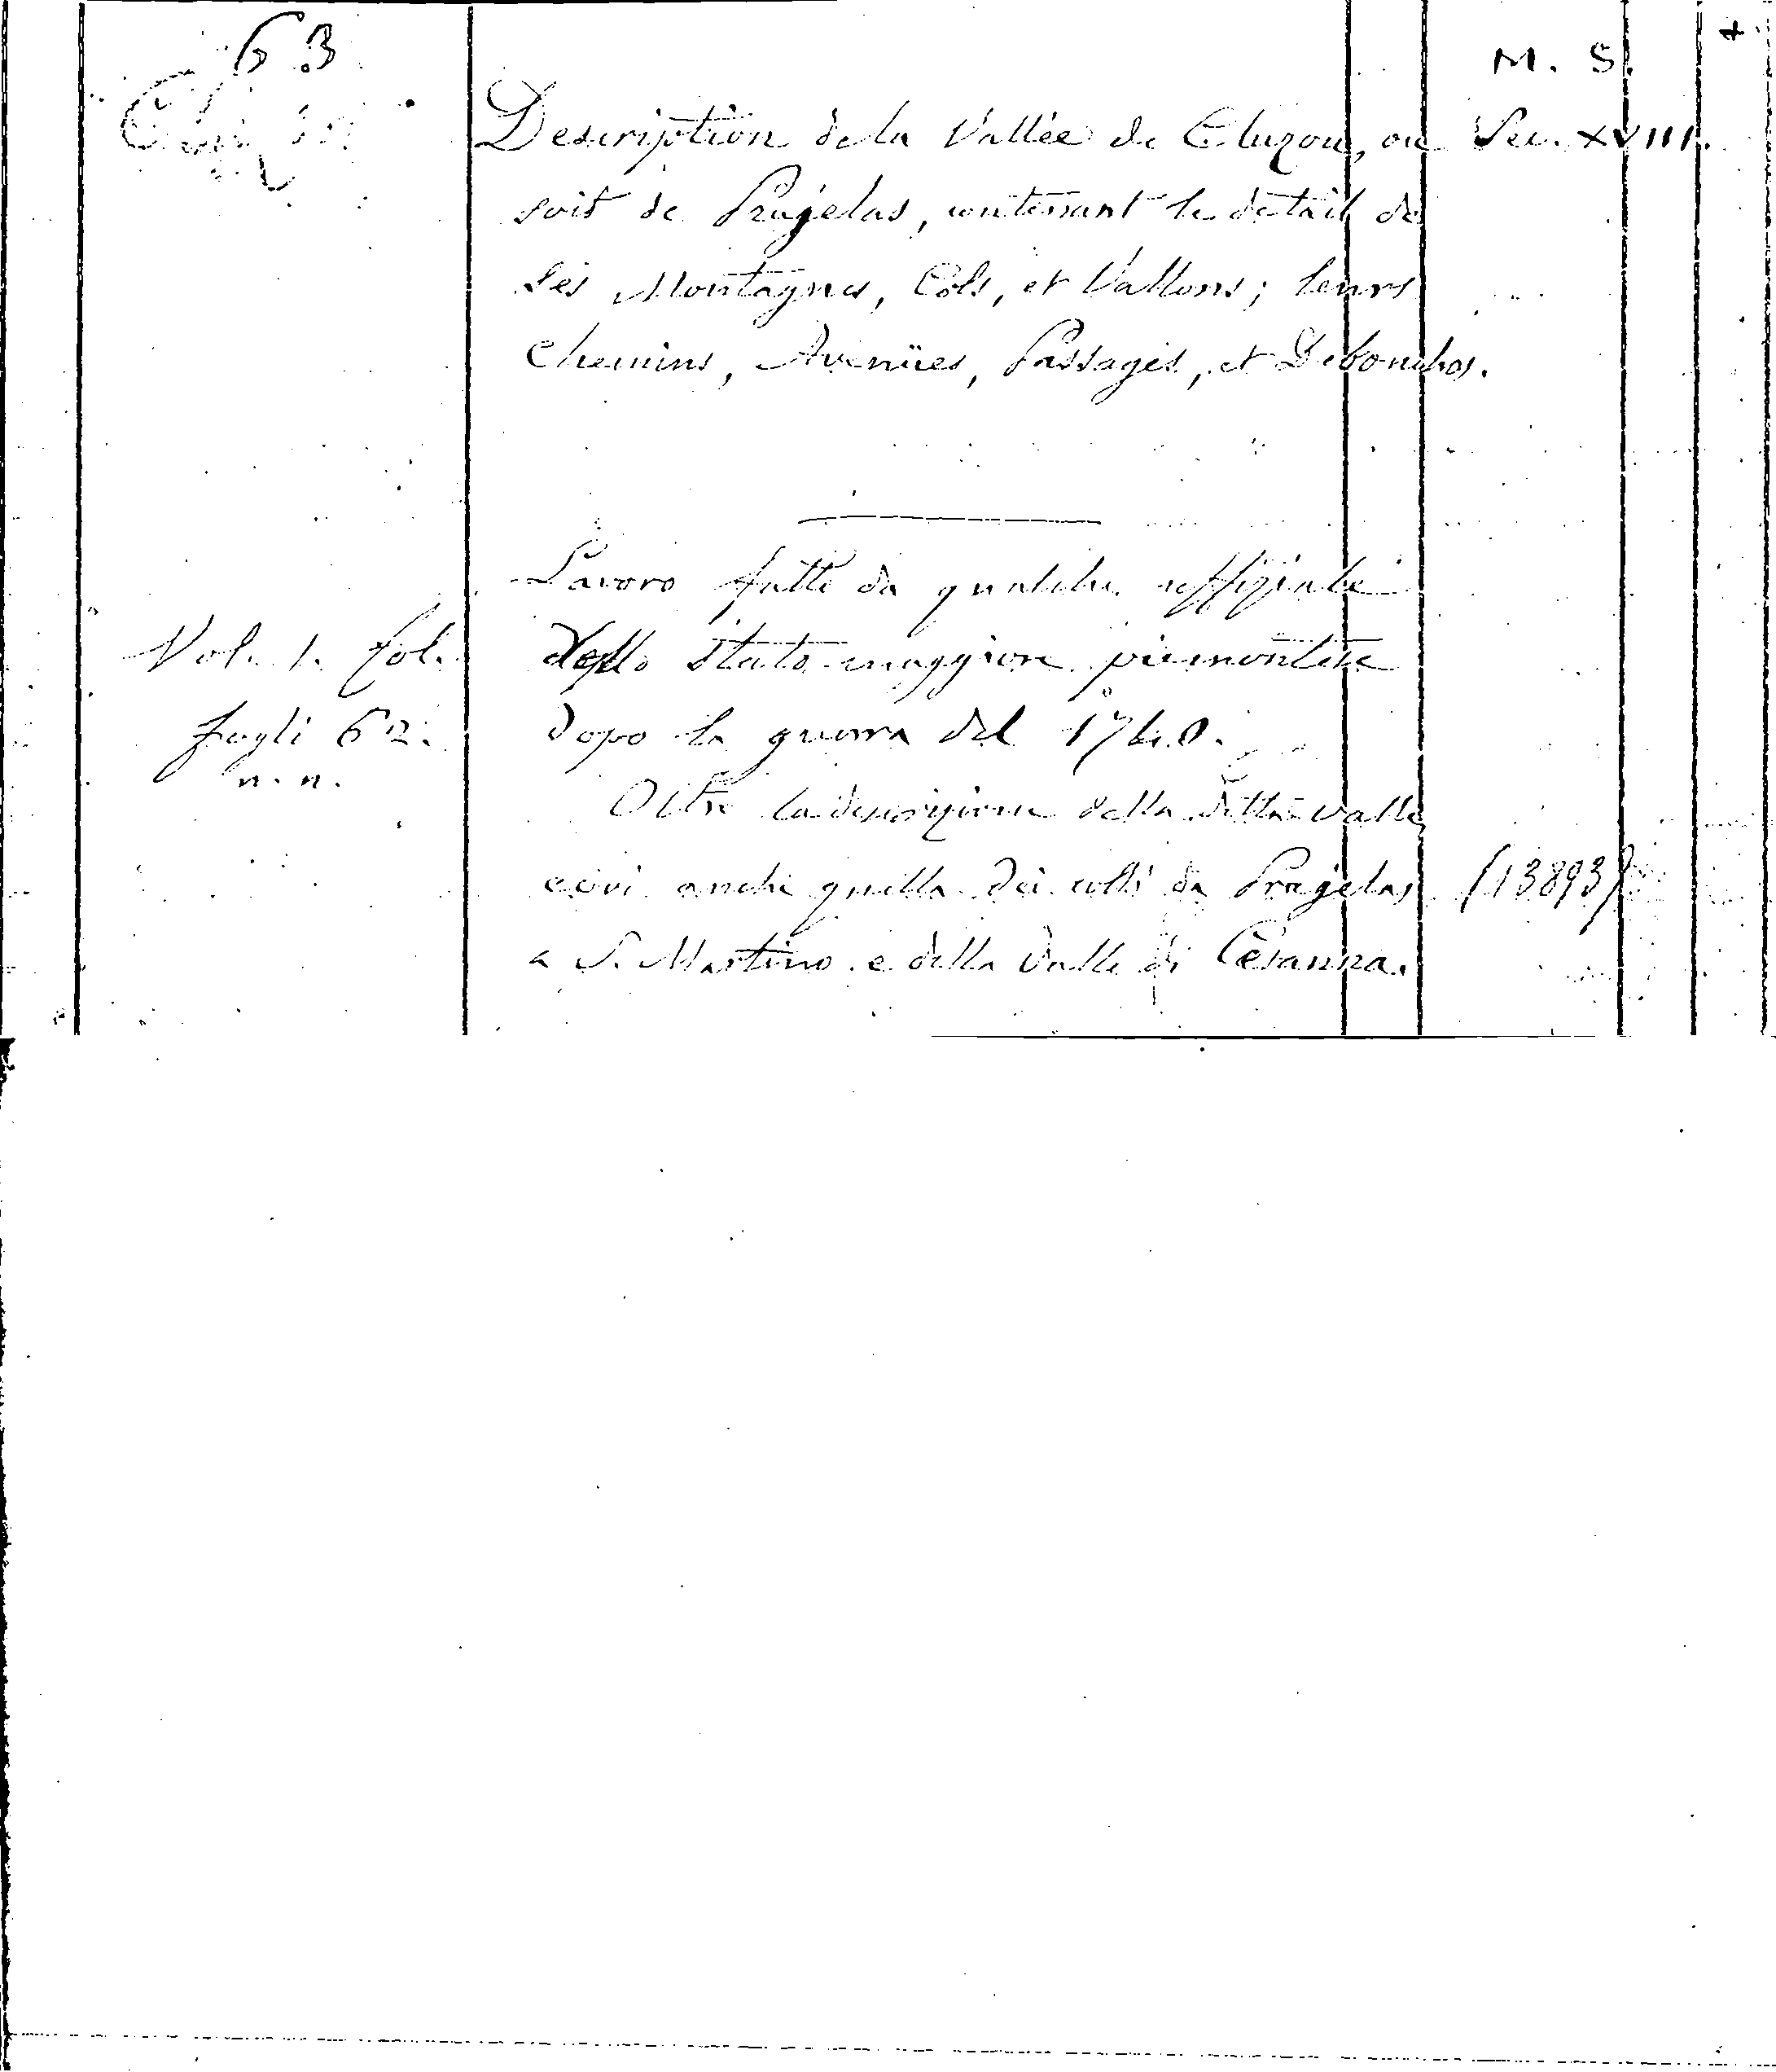 63
M. S.
+
Description de la Vallée de Cluzon, ou
Sec. XVIII.
soit de Pragelas, contenant le detail de
ses Montagnes, Cols, et Vallons; leurs
Chemins, Avenües, Passages, et Debouches.
Lavoro fatto da qualche uffiziale
Vol. 1. fol.
dello Stato maggiore piemontese
fogli 62.
dopo la guerra del 1740.
n. n.
Oltre la descrizione della detta valle
evvi anche quella dei colli da Pragelas
(13893)
a S. Martino e della Valle di Cesanna.